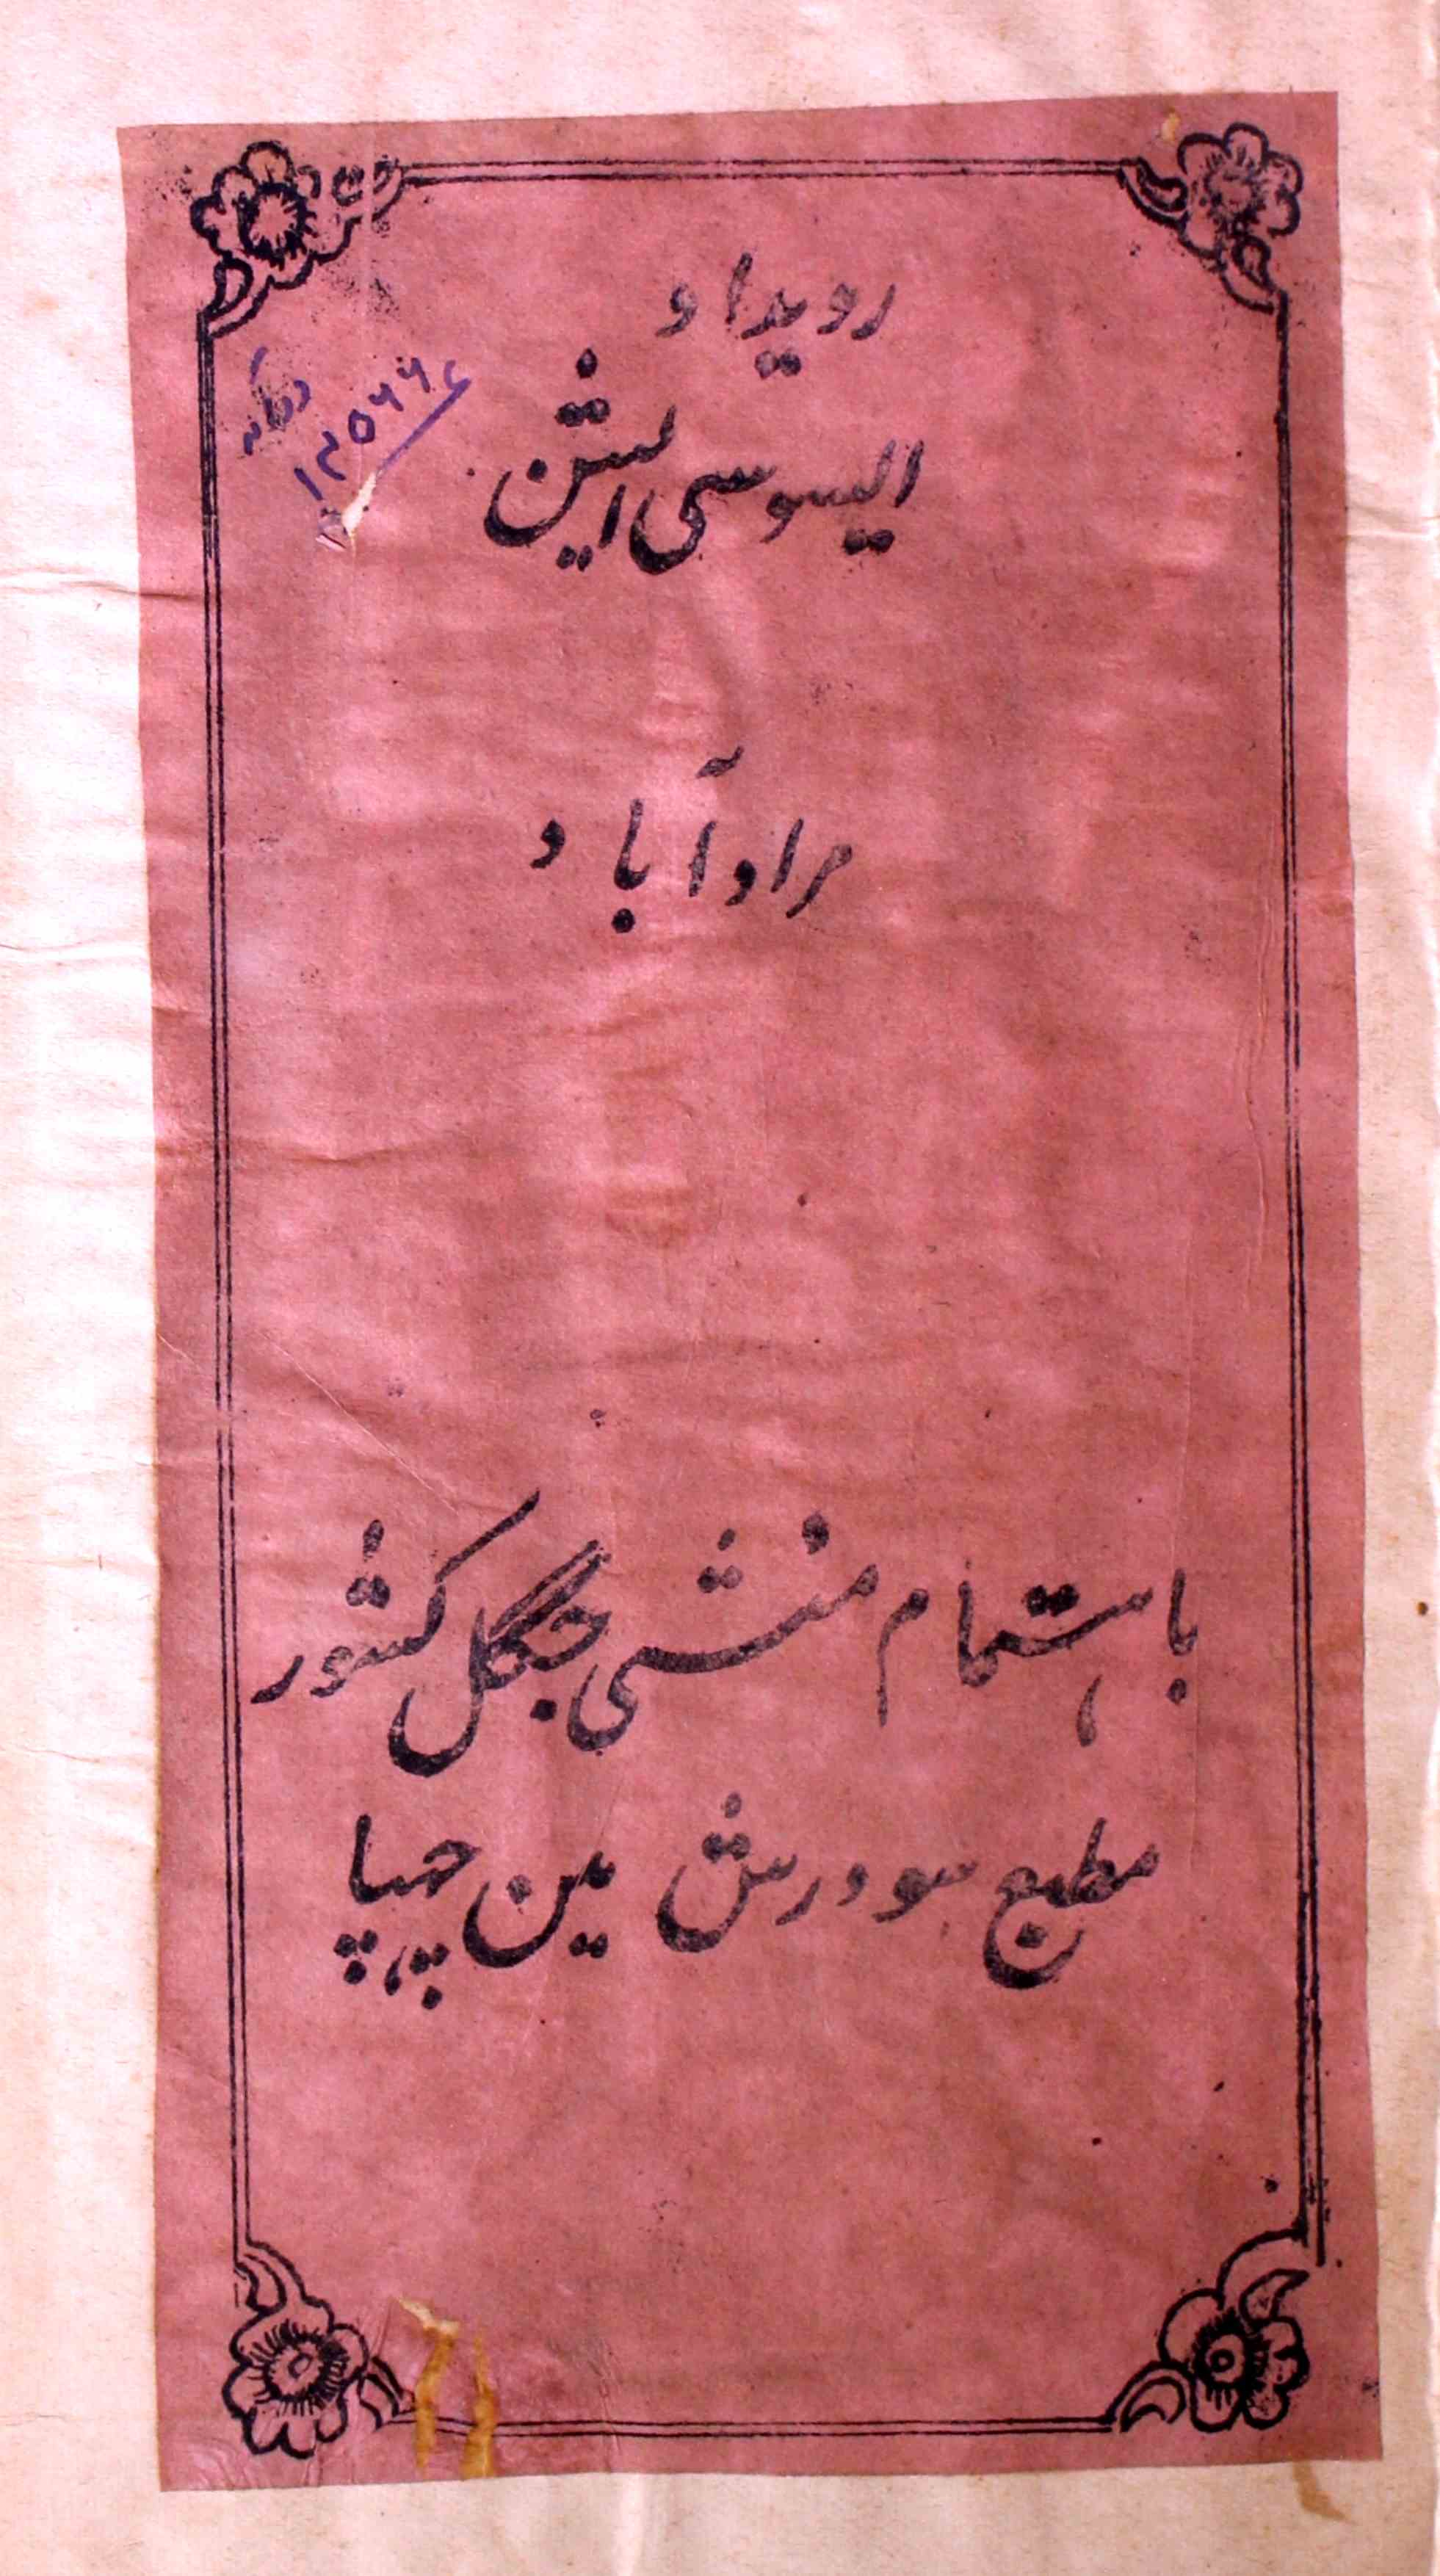 رویداد
ایسوسی ایشن
مرادآباد
باہتمام منشی جگل کشور
مطبع سودرشن مین چھپا
۱۲۵۶۶